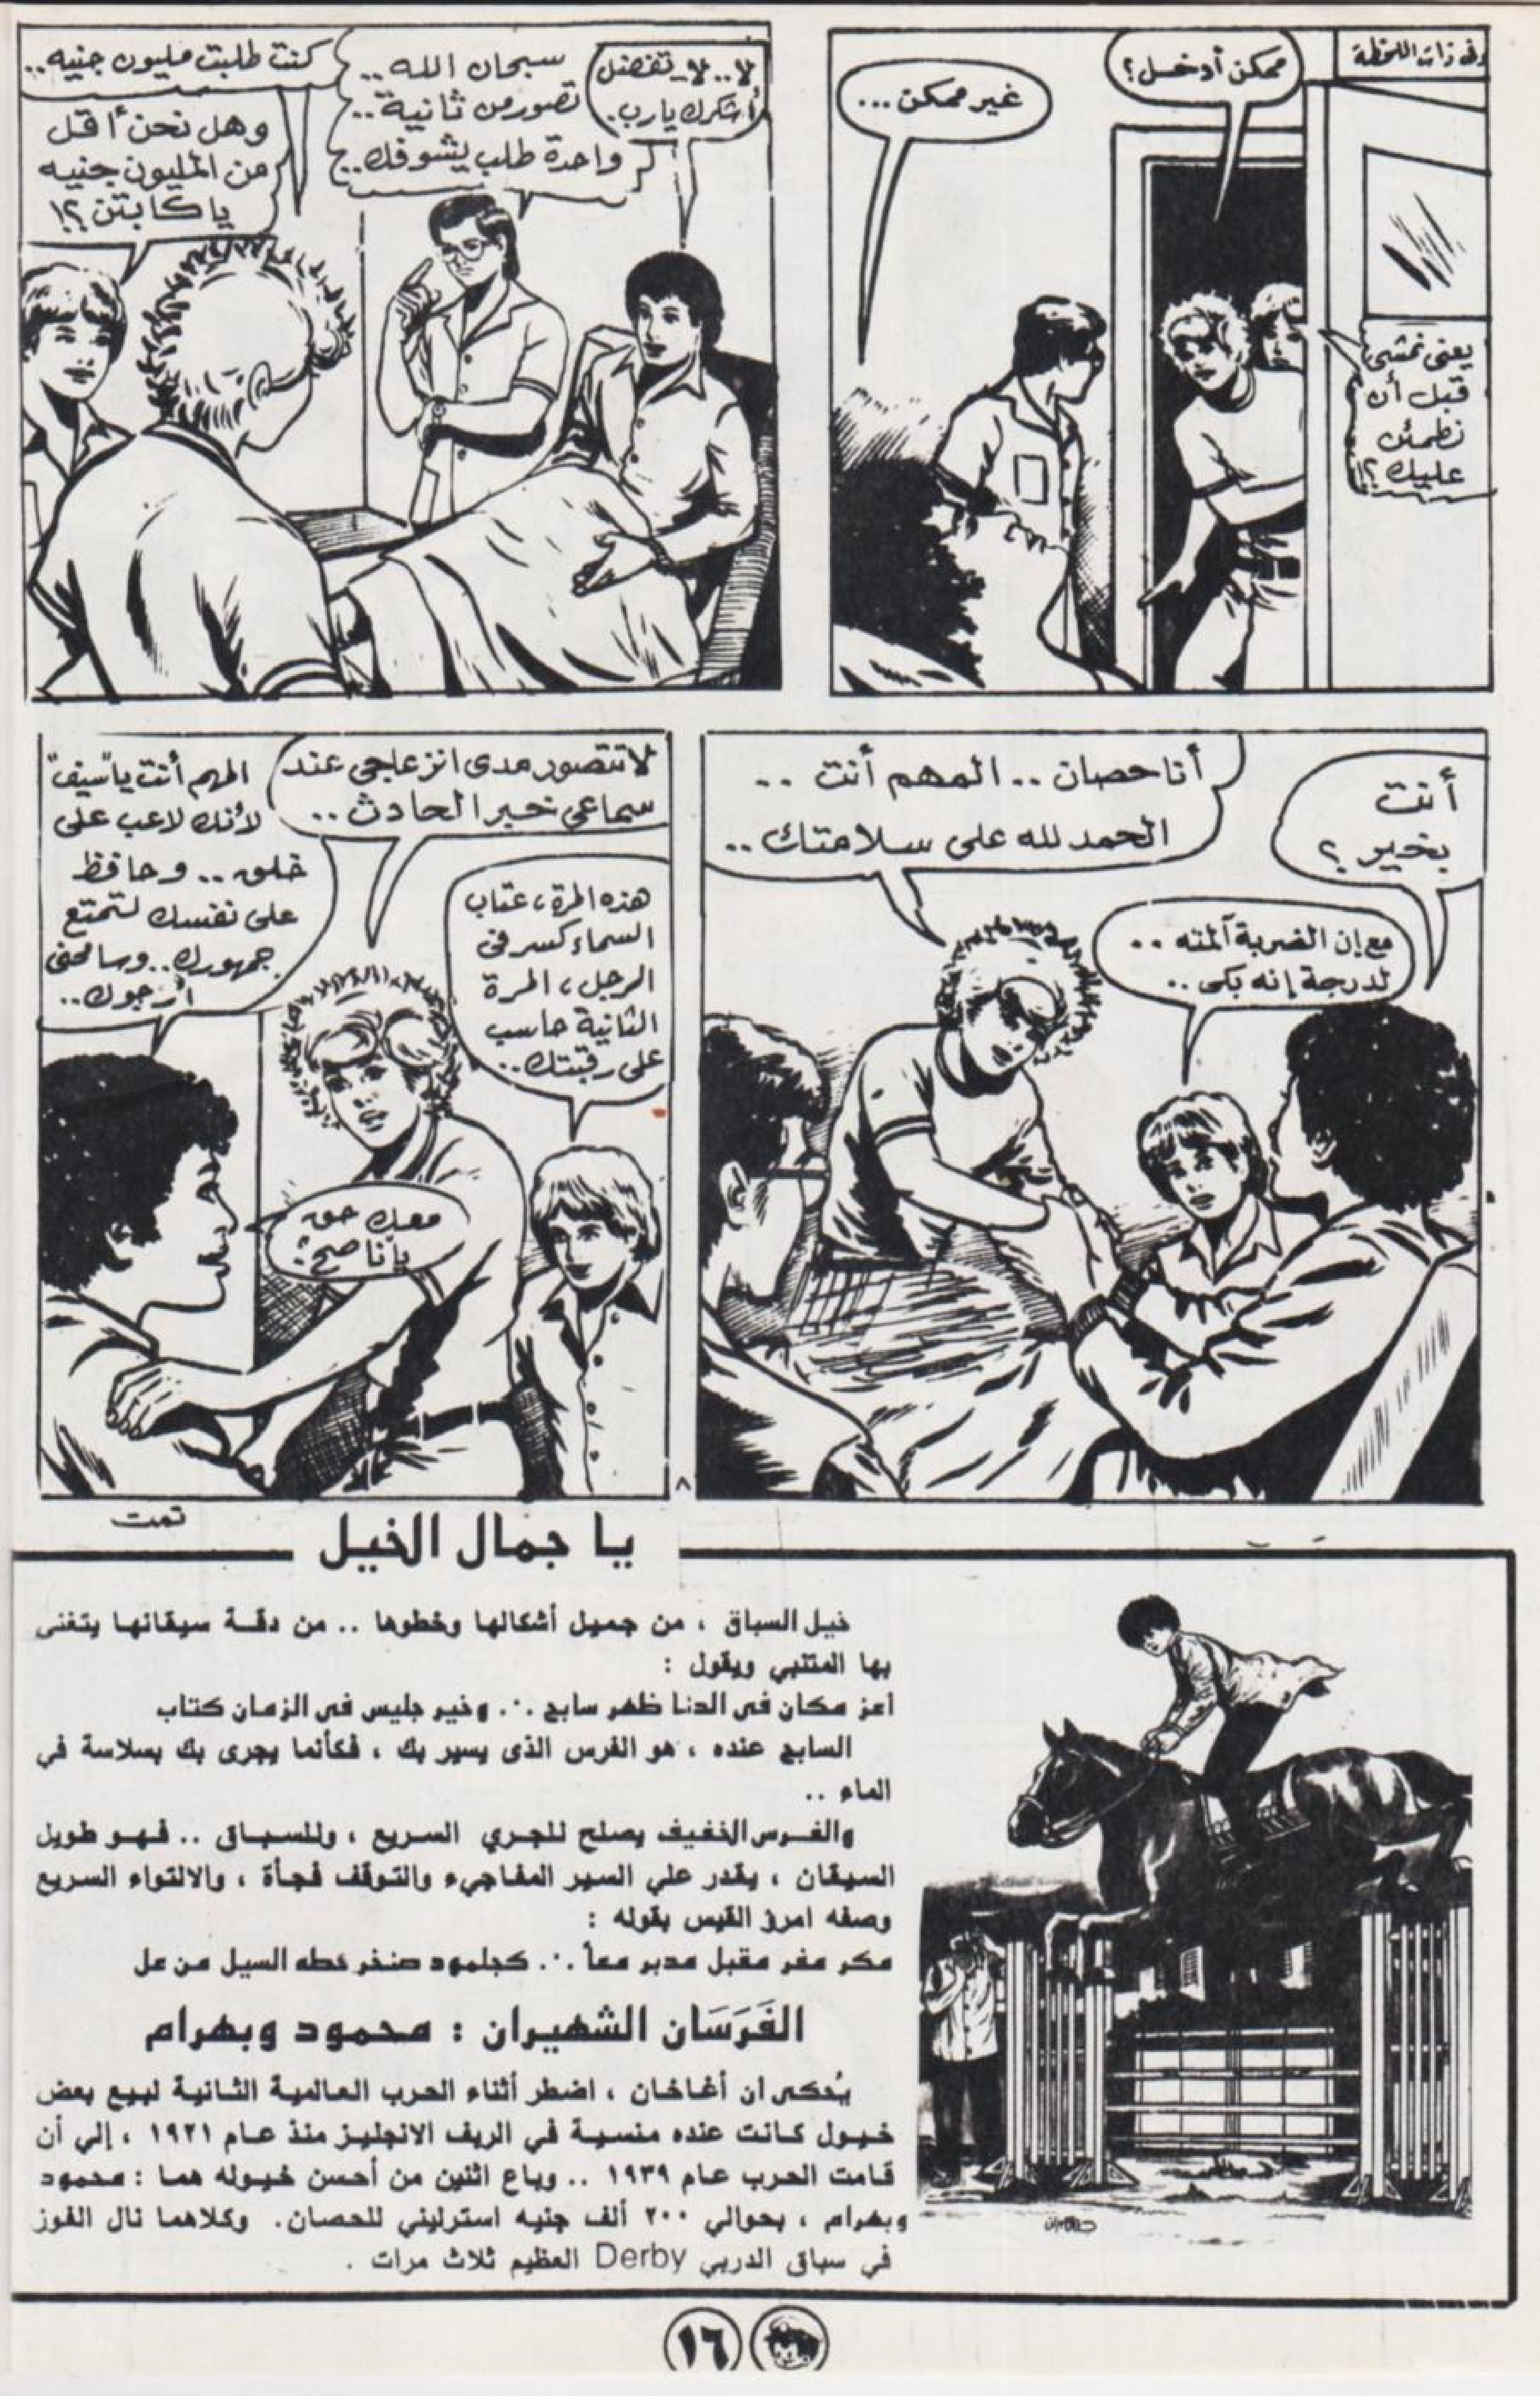 وفى ذات اللحظة
ممكن أدخل؟
غير ممكن...
يعنى نمشى
قبل أن
نطمئن
عليك؟!
لا..لا..تفضل
أشكرك يارب.
سبحان الله..
تصور من ثانية..
واحدة طلب يشوفك..
كنت طلبت مليون جنيه..
وهل نحن أقل
من المليون جنيه
يا كابتن؟!
أنت
بخير؟
أنا حصان .. المهم أنت ..
الحمد لله على سلامتك ..
مع إن الضربة آلمته ..
لدرجة إنه بكى ..
لا تتصور مدى انزعاجى عند
سماعى خبر الحادث ..
المهم أنت يا "سيف"
لأنك لاعب على
خلق .. وحافظ
على نفسك لتمتع
جمهورك .. وسامحنى
أرجوك ..
هذه المرة، عتاب
السماء كسر فى
الرجل، المرة
الثانية حاسب
على رقبتك ..
معك حق
يا ناصح!
٨
تمت
يا جمال الخيل
خيل السباق ، من جميل أشكالها وخطوها .. من دقة سيقانها يتغنى
بها المتنبي ويقول :
اعز مكان فى الدنا ظهر سابح .٠. وخير جليس فى الزمان كتاب
السابح عنده ، هو الفرس الذى يسير بك ، فكأنما يجرى بك بسلاسة في
الماء ..
والفرس الخفيف يصلح للجري السريع ، وللسباق .. فهو طويل
السيقان ، يقدر علي السير المفاجيء والتوقف فجأة ، والالتواء السريع
وصفه امرؤ القيس بقوله :
مكر مفر مقبل مدبر معاً .٠. كجلمود صخر حطه السيل من عل
الفَرَسَان الشهيران : محمود وبهرام
يُحكى ان أغاخان ، اضطر أثناء الحرب العالمية الثانية لبيع بعض
خيول كانت عنده منسية في الريف الانجليز منذ عام ١٩٢١ ، إلي أن
قامت الحرب عام ١٩٣٩ .. وباع اثنين من أحسن خيوله هما : محمود
وبهرام ، بحوالي ٢٠٠ ألف جنيه استرليني للحصان. وكلاهما نال الفوز
في سباق الدربي Derby العظيم ثلاث مرات .
١٦